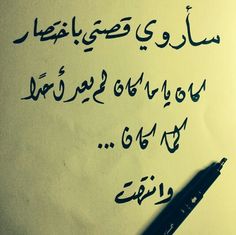 سأروي قصتي باختصار
كان يا ما كان لم يعد أحدًا
كما كان ...
وانتهت